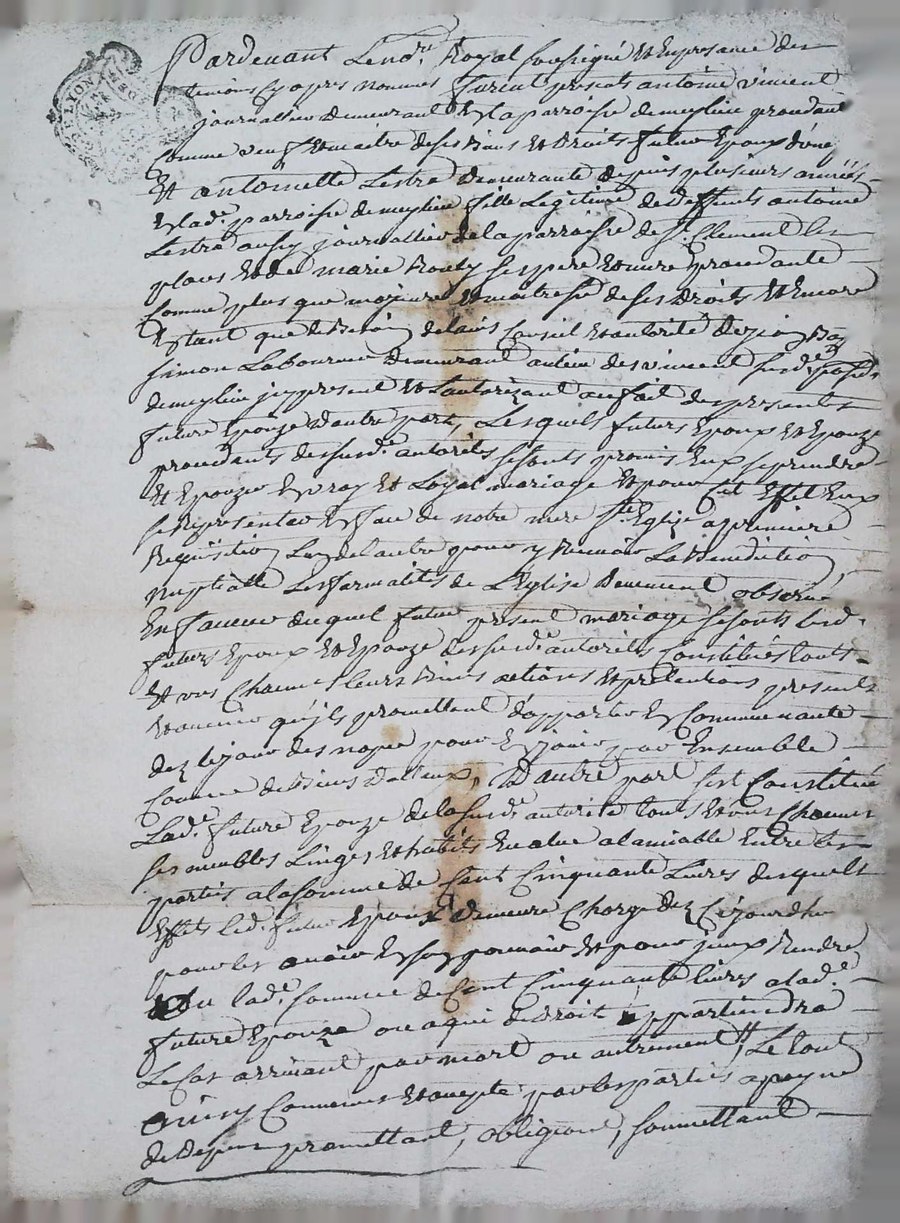 Pardevant Le no.re Royal soussigné et En presance des
temoins cy apres nommés furent presents antoine vincent
journallier demeurant En la parroisse de meylieu procedant
comme veuf et maitre de ses Biens et droits futur Epoux d'une part
Et antoinette Lestra demeurante depuis plusieurs années
En lad.e parroisse de meylieu fille Legitime de deffunts antoine
Lestra aussy journallier de la parroisse de S.t Clement les
places et de marie ses pere et mere procedante
comme plus que majeure et maitresse de ses droits et Encore
Entant que de Besoin de l'avis conseil et autorité de
simon Labourme demeurant
de meylieu icy present et L'autorizant au fait des presentes
future Epouze d'autre part, Lesquels futurs Epoux et Epouze
procedants dessusd.e autorités se sonts promis Eux se prendre
Et Epouzer En vray Et Loyal mariage Et pour cet Effet Eux
se Representer En face de notre mere S.te Eglize a premiere
Requisition L'un de l'autre pour y Recevoir La Benediction
nuptialle Les formalités de L'Eglize deuement observé
En faveur duquel futur present mariage se sonts lesd.
futurs Epoux Et Epouze dessusd.e autorités constitués touts
Et uns chacuns leurs Biens actions Et pretentions presents
Et avenir qu'ils promettent d'apporter En communauté
dez le jour des nopces pour En jouir par Ensemble
comme de Biens d'alleux, D'autre part s'est constitué
Lad.e future Epouze de la susd.e autorité touts Et uns chacuns
ses meubles Linges Et habits Evalué a l'amiable Entre les
parties a la somme de Cent Cinquante Livres desquels
Effets led. futur Epoux demeure Chargé dez Cejourdhuy
pour les avoir En son pouvoir Et pour iceux Rendre
ou lad.e somme de Cent Cinquante livres a lad.e
future Epouze ou a qui de droit appartiendra
Le cas arrivant par mort ou autrement, Le tout
ainsy Convenu Et accepté par les parties a peyne
de Depens promettant, obligeant, soumettant